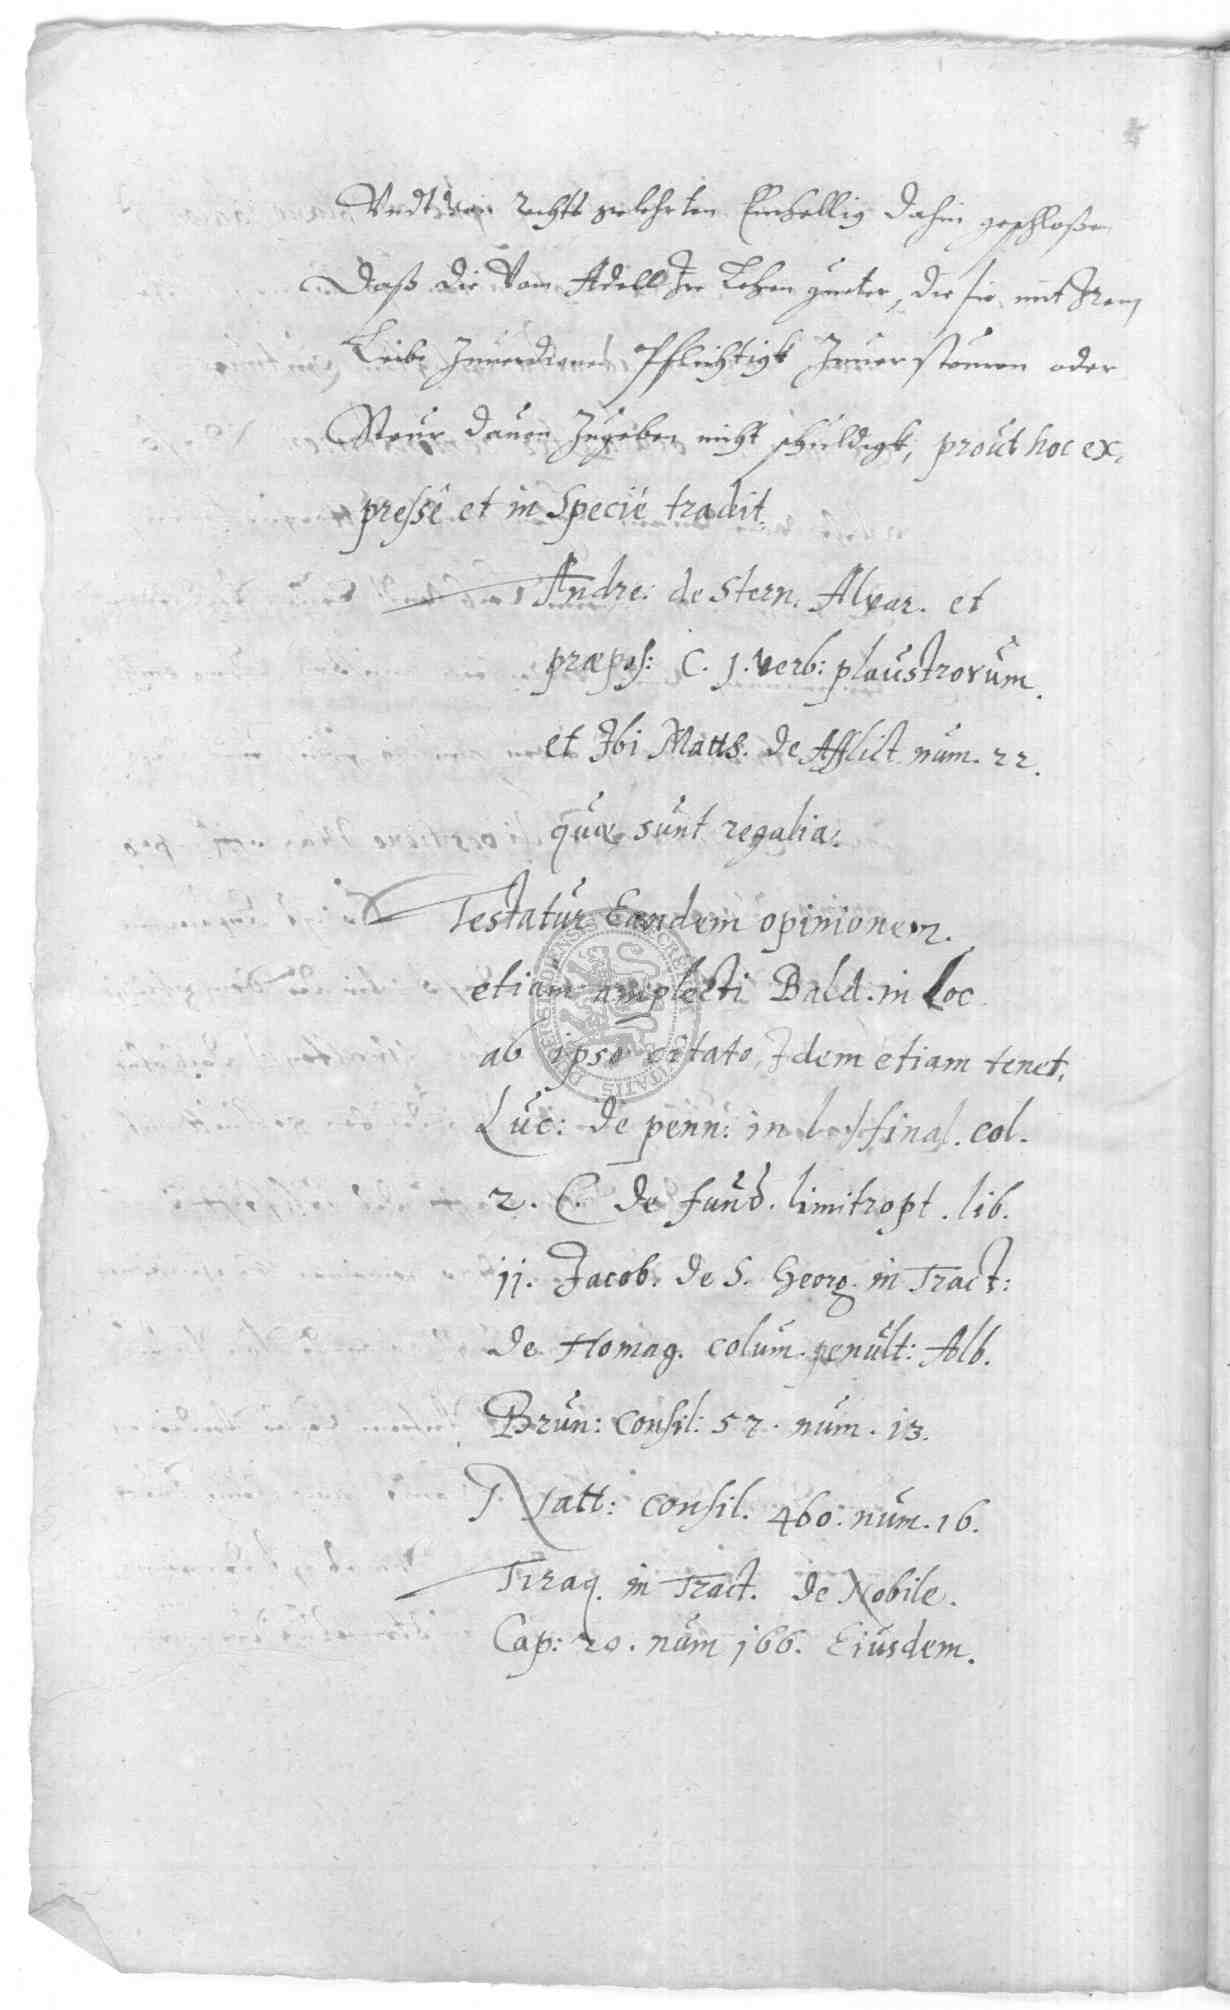 Undt von rechts gelehrten Einhellig dahin geschloßen
Daß die Vom Adell Ire Lehen gueter, die sie mit Irem
Leibe Zuuerdienen Pflichtigk Zuuersteuren oder
Steur dauon Zugeben nicht schuldigk, prout hoc ex,
pressè et in Specié tradit.
Andre: de Stern. Alvar. et
præpos: C. 1. verb: plaustrorum.
et Ibi Matts. de Afflict num. 22.
quæ sunt regalia.
Testatur Eandem opinionem.
etiam amplecti Bald. in Loc
ab ipso citato, Idem etiam tenet,
Luc: de penn: in l. final. col.
2. C. de fund. limitropt. lib.
11. Jacob. de S. Georg. in Tract:
de Homag. colum. penult: Alb.
Brun: Consil: 57. num. 13.
Natt: consil. 460: num. 16.
Tiraq. in Tract. de Nobile.
Cap: 20. num 166. Eiusdem.